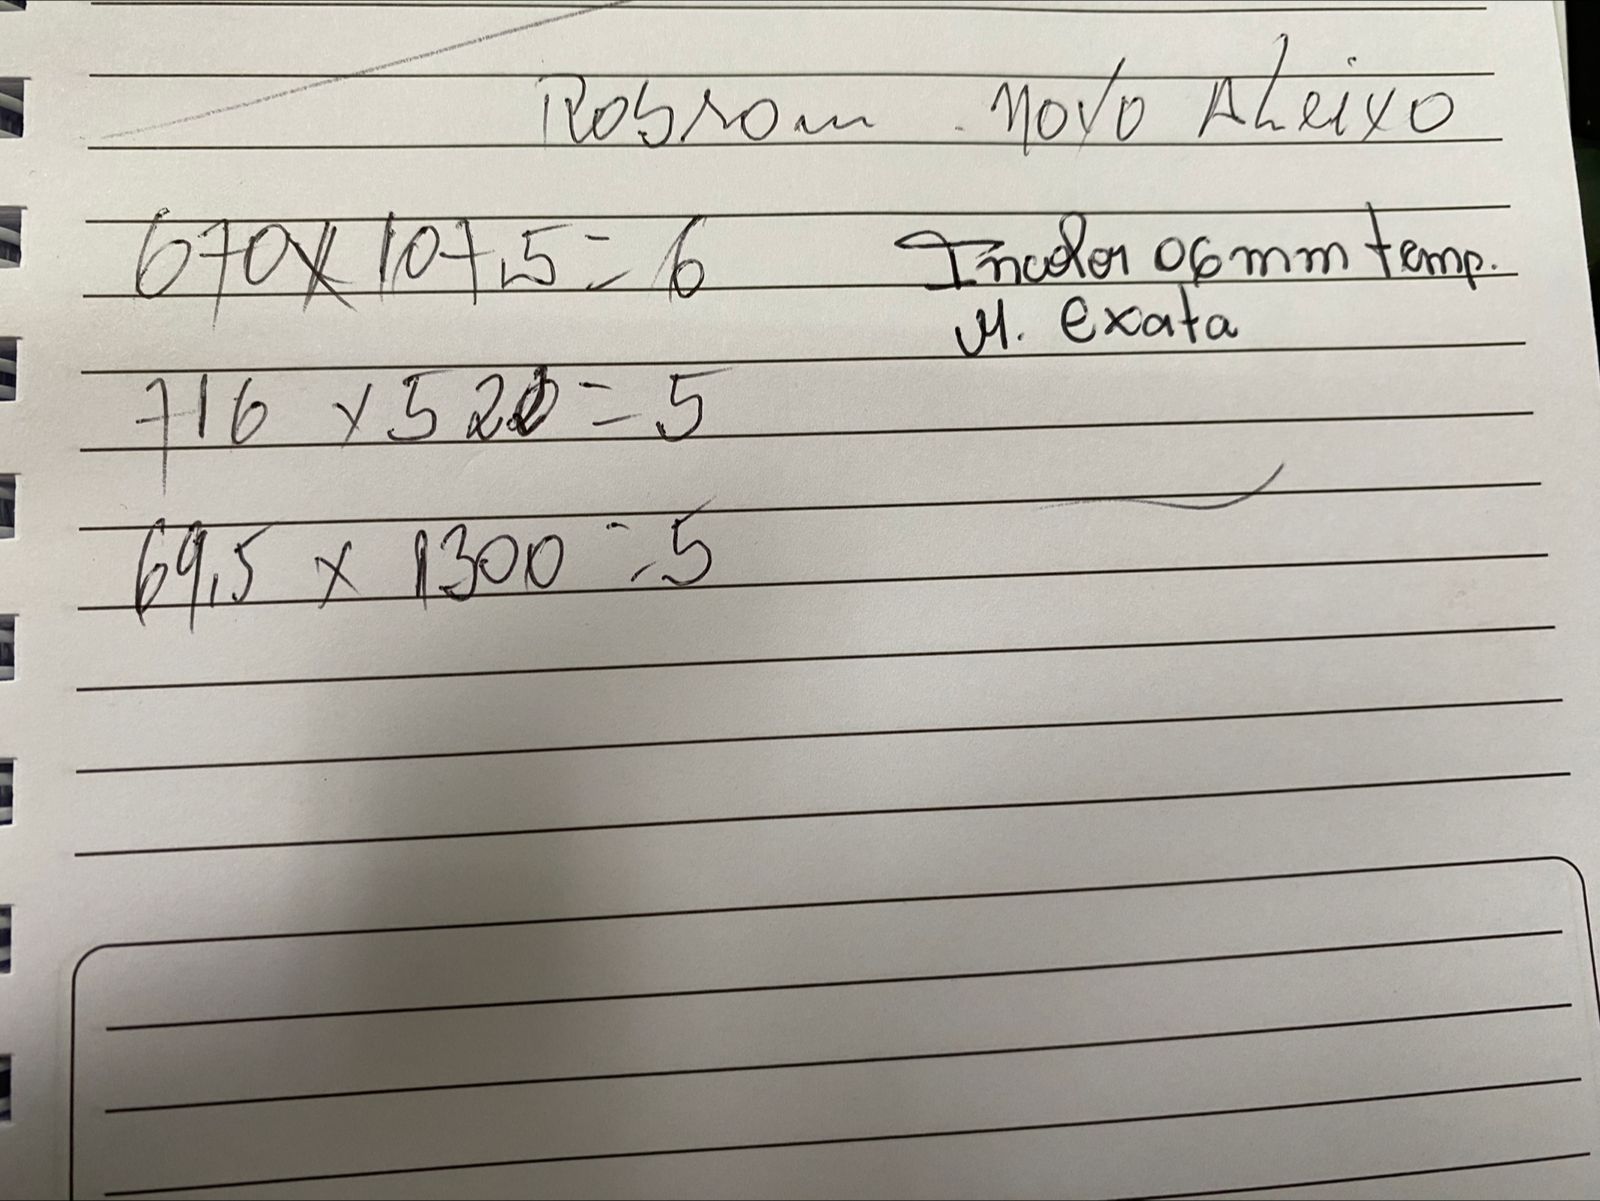 Robson Novo Aleixo
670x107,5=6 Incolor 06mm temp.
M. exata
716 x 520=5
69,5 x 1300=5